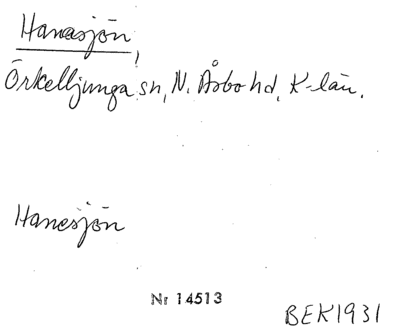 Hanasjön,
Örkelljunga sn, N. Åsbo hd, K-län.
Hanesjön
Nr 14513
BEK1931